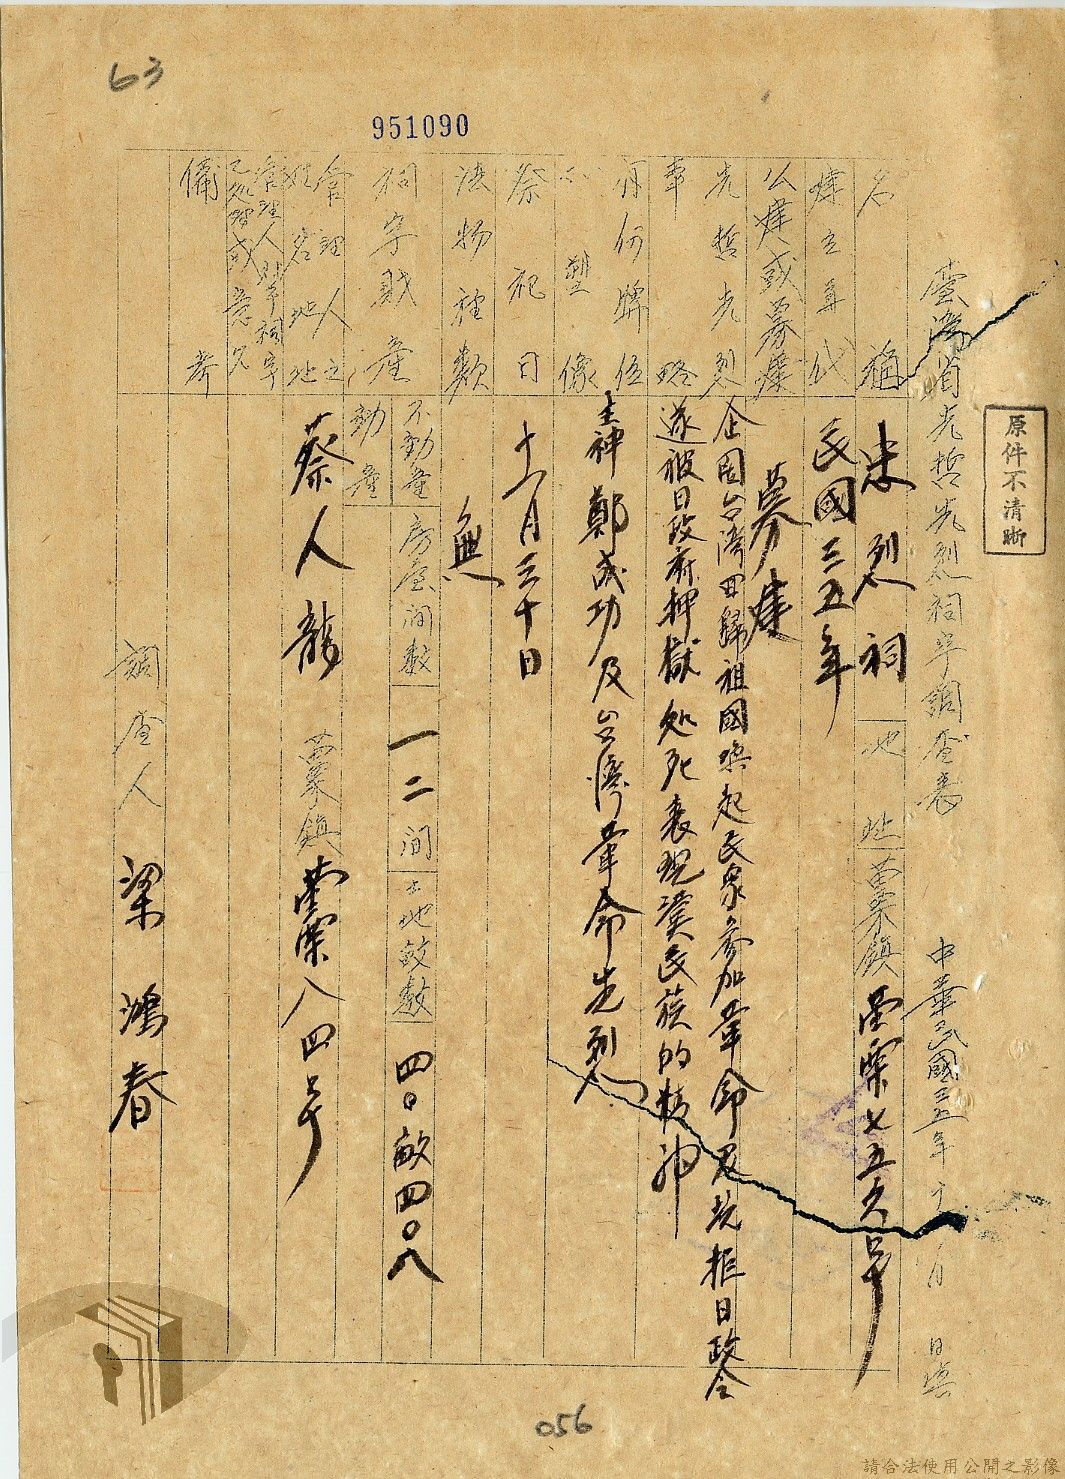 63
951090
原件不清晰
臺灣省先哲先烈祠宇調查表 中華民國三五年十一月 日填
名稱 忠烈祠 地址 苗栗鎮苗栗七五六号
建立年代 民國三五年
公建或募建 募建
先哲先烈 企図台湾回歸祖國喚起民衆參加革命及抗拒日政令
事略 遂被日政府押獄処死表現漢民族的精神
有何牌位 主神鄭成功及台湾革命先烈
塑像
祭祀日 十一月三十日
法物種類 無
祠宇財產 不動產 房屋間數 一二間 土地畝數 四〇畝四〇八
動產
管理人之姓名地址 蔡人龍 苗栗鎮苗栗八四号
管理人對祠宇之處理或意見
備考
調查人 梁鴻春
056
請合法使用公開之影像